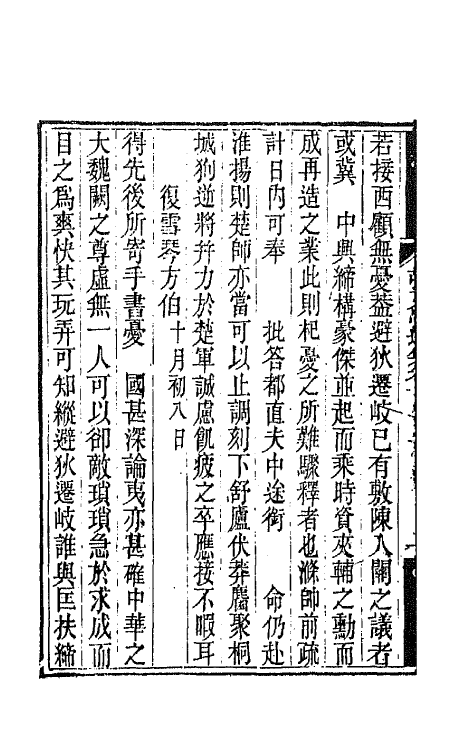 若接西顧無憂葢避狄遷岐已有敷陳入關之議者
或冀　中興締構豪傑並起而乘時資夾輔之勳而
成再造之業此則杞憂之所難驟釋者也滌師前疏
計日內可奉　　批答都直夫中途銜　　命仍赴
淮揚則楚師亦當可以止調刻下舒廬伏莽麕聚桐
城狗逆將幷力於楚軍誠慮飢疲之卒應接不暇耳
復雪琴方伯十月初八日
得先後所寄手書憂　國甚深論夷亦甚確中華之
大魏闕之尊虛無一人可以卻敵瑣瑣急於求成而
目之爲爽快其玩弄可知縱避狄遷岐誰與匡扶締